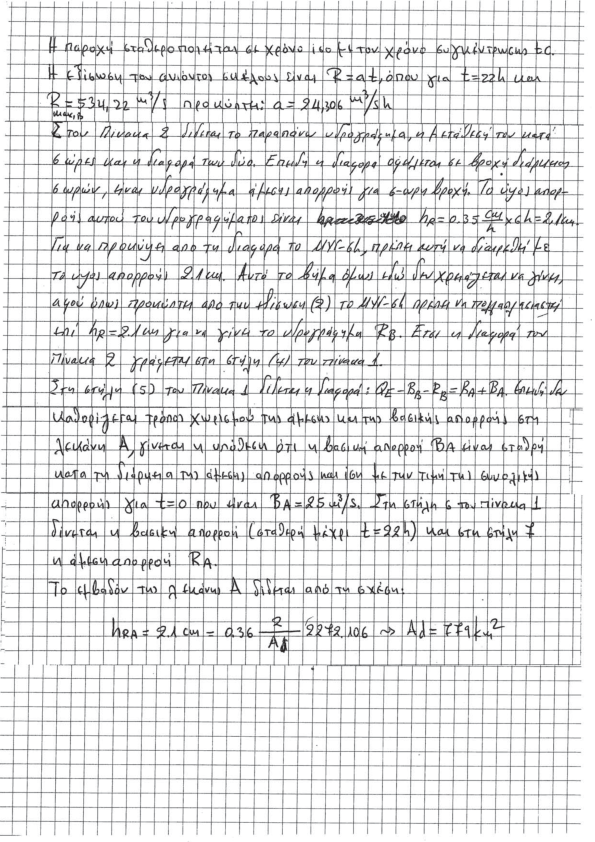 Η παροχή σταθεροποιείται σε χρόνο ίσο με τον χρόνο συγκέντρωσης tc.
Η εξίσωση του ανιόντος σκέλους είναι R=at, όπου για t=22h και
R=534,22 m³/s προκύπτει: a=24,306 m³/sh
max,B
Στον Πίνακα 2 δίδεται το παραπάνω υδρογράφημα, η μετάθεσή του κατά
6 ώρες και η διαφορά των δύο. Επειδή η διαφορά οφείλεται σε βροχή διάρκειας
6 ωρών, είναι υδρογράφημα άμεσης απορροής για 6-ωρη βροχή. Το ύψος απορ-
ροής αυτού του υδρογραφήματος είναι hR=0.35 cm/h x6h=2.1cm.
Για να προκύψει από τη διαφορά το ΜΥΓ-6h, πρέπει αυτή να διαιρεθεί με
το υψος απορροής 2.1cm. Αυτό το βήμα όμως εδώ δεν χρειάζεται να γίνει,
αφού όπως προκύπτει από την εξίσωση (2) το ΜΥΓ-6h πρέπει να πολλαπλασιαστεί
επί hR=2.1cm για να γίνει το υδρογράφημα RB. Ετσι η διαφορά του
Πίνακα 2 γράφεται στη στήλη (4) του πίνακα 1.
Στη στήλη (5) του Πίνακα 1 δίδεται η διαφορά: QE-BB-RB=RA+BA. Επειδή δεν
καθορίζεται τρόπος χωρισμού της άμεσης και της βασικής απορροής στη
λεκάνη Α, γίνεται η υπόθεση ότι η βασική απορροή BA είναι σταθερή
κατα τη διάρκεια της άμεσης απορροής και ίση με την τιμή της συνολικής
απορροής για t=0 που είναι BA=25 m³/s. Στη στήλη 6 του πίνακα 1
δίνεται η βασική απορροή (σταθερή μέχρι t=22h) και στη στήλη 7
η άμεση απορροή RA.
Το εμβαδόν της λεκάνης Α δίδεται από τη σχέση:
hRA = 2.1 cm = 0.36 2/Ad 2272.106 ⇝ Ad=779km²